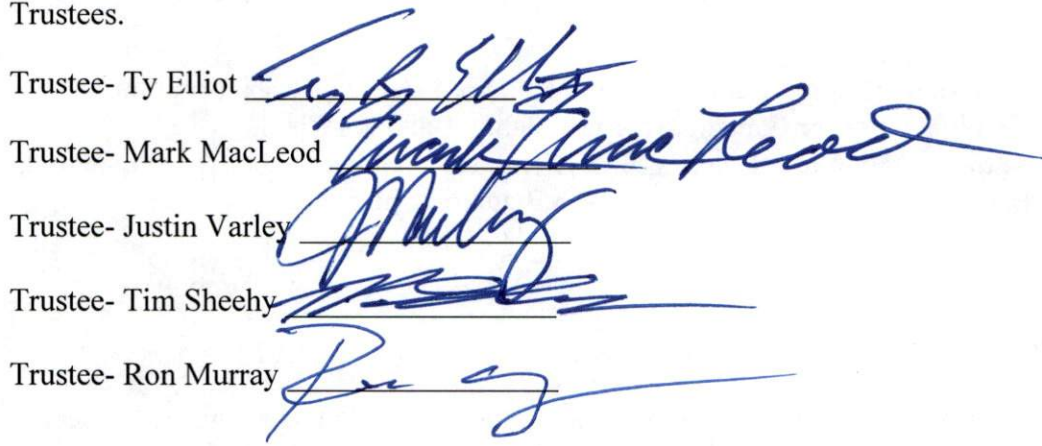 Trustees.
Trustee- Ty Elliot
Trustee- Mark MacLeod Mark MacLeod
Trustee- Justin Varley
Trustee- Tim Sheehy
Trustee- Ron Murray